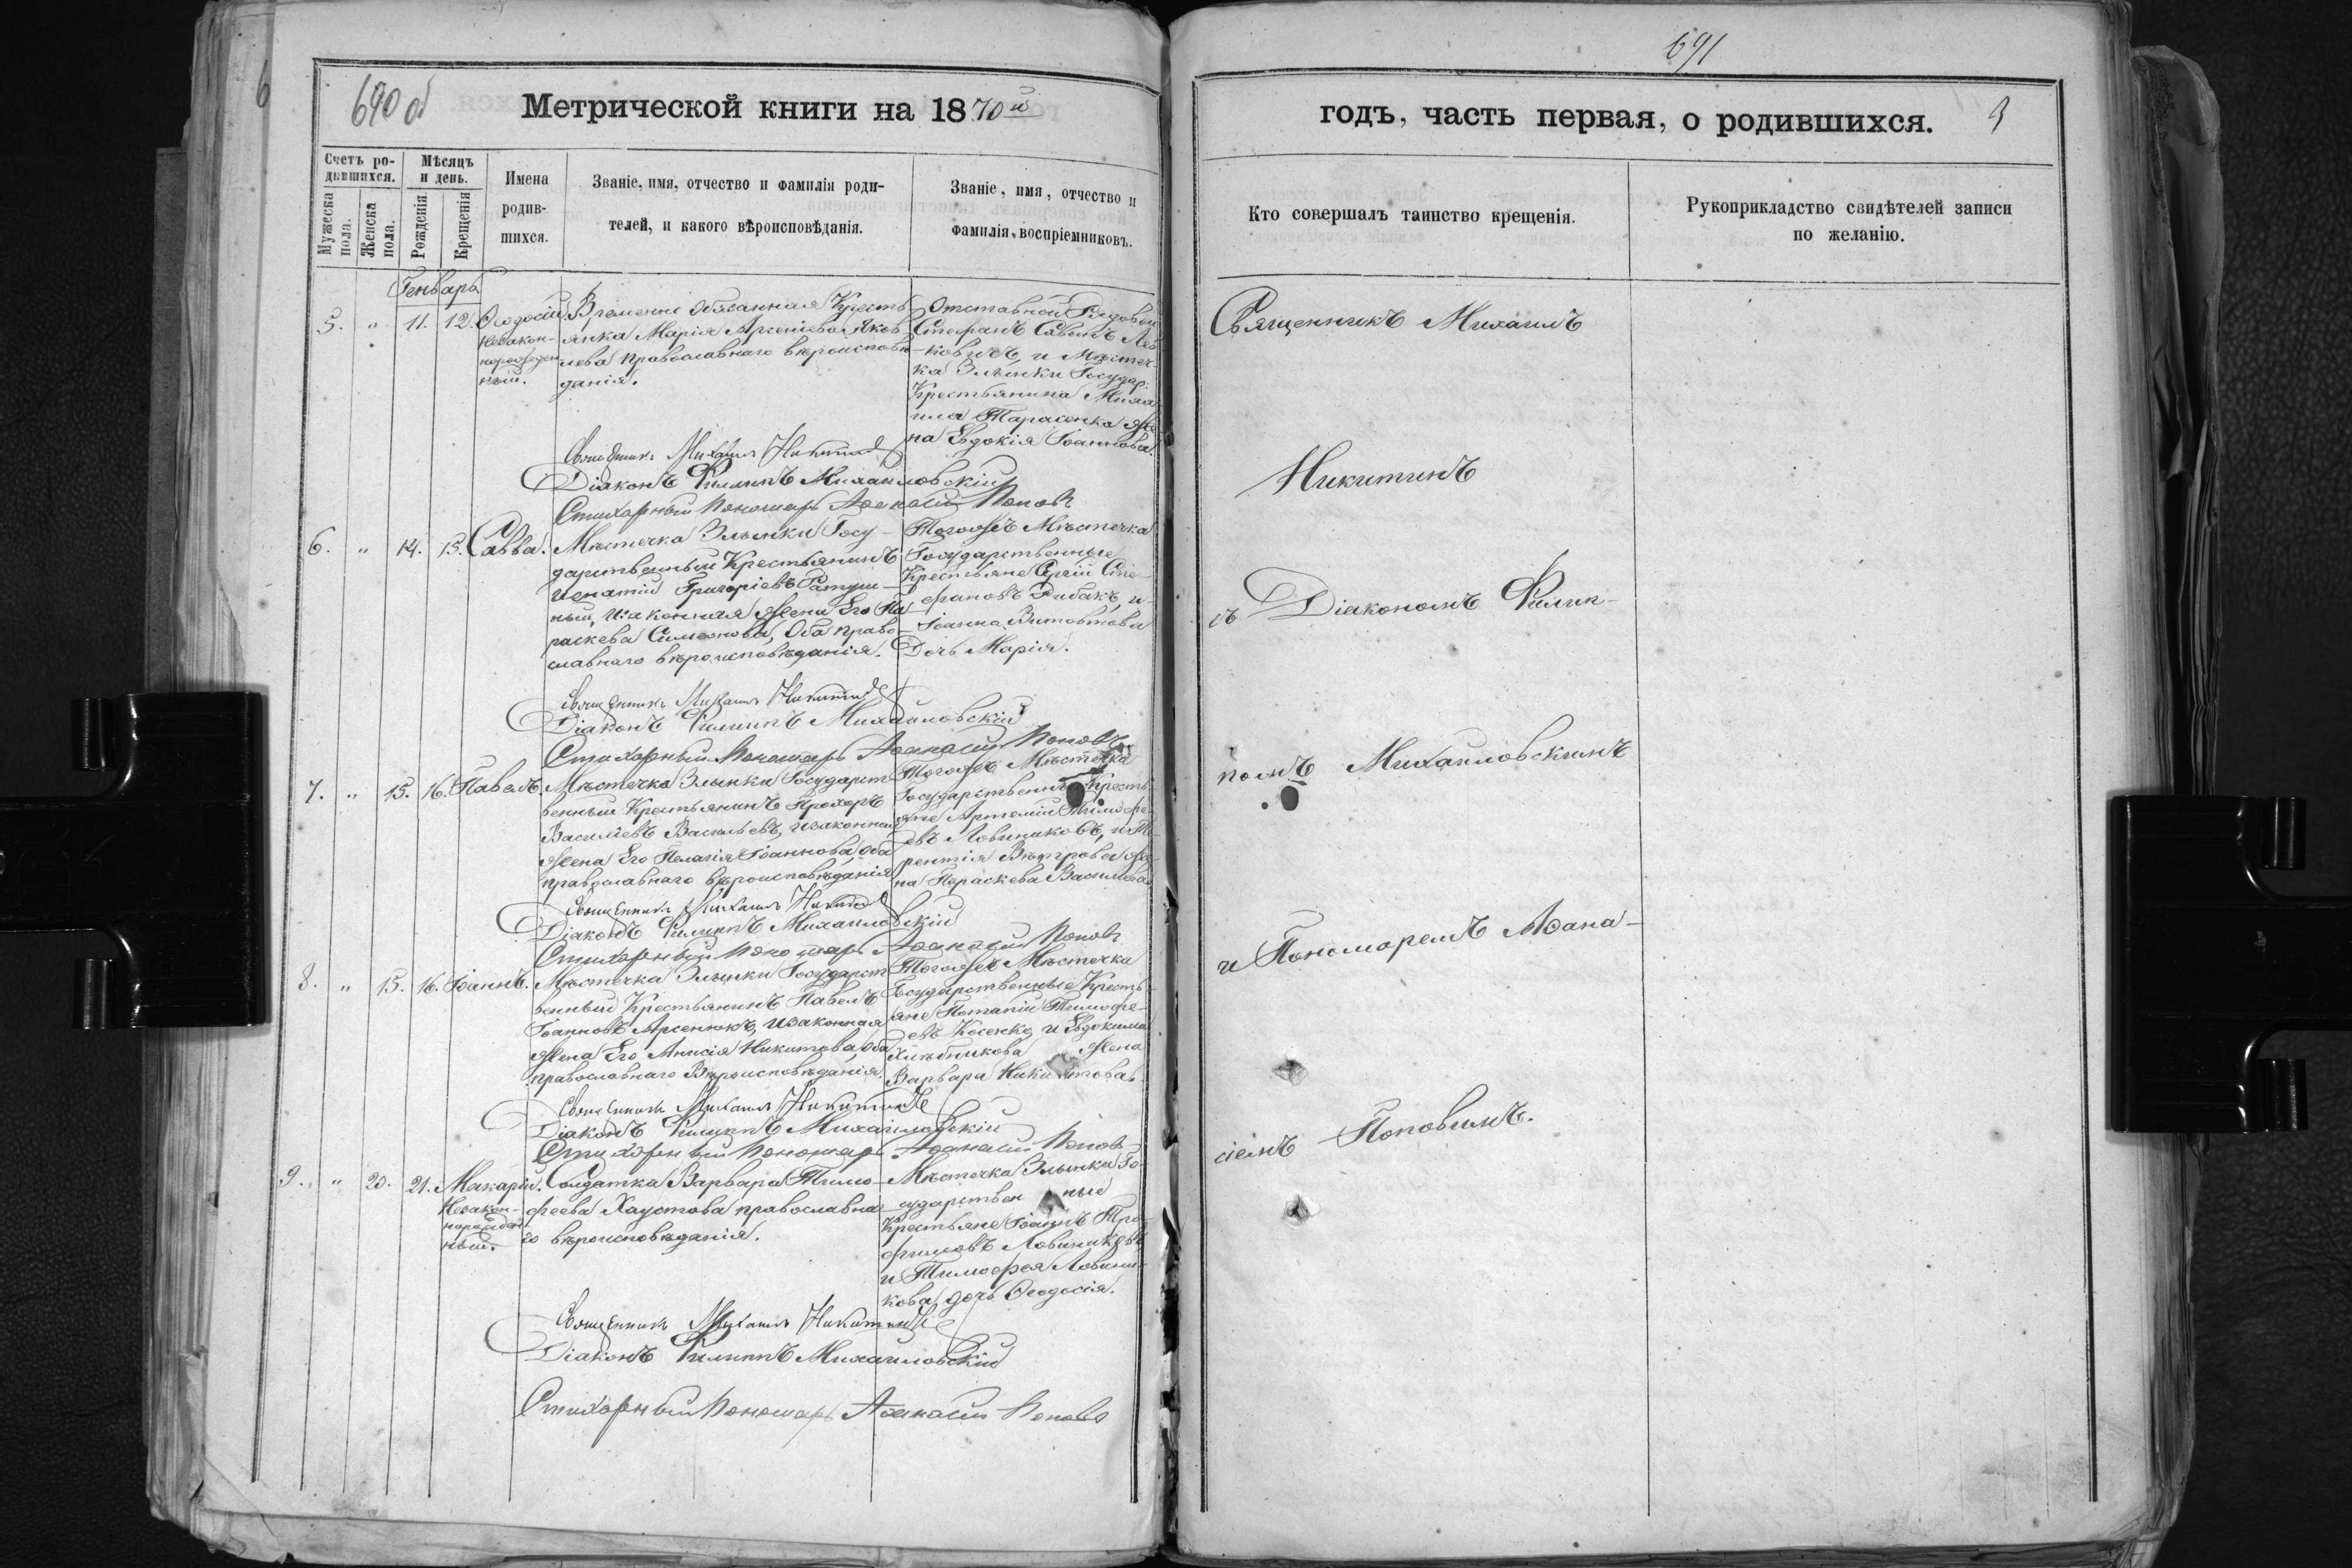 690 об
Метрической книги на 1870й
Счетъ ро-
дившихся.
Мужеска
пола.
Женска
пола.
Мѣсяцъ
и день.
Рожденія.
Крещенія
Имена
родив-
шихся.
Званіе, имя, отчество и фамилія роди-
телей, и какого вѣроисповѣданія.
Званіе, имя, отчество и
фамилія воспріемниковъ.
Генварь
5. " 11. 12. Ѳеодосій
Незакон-
норожден
ный.
Временно Обязанная Кресть-
янка Марія Арсеніева Яков
лева православнаго вѣроисповѣ
данія.
Отставной Рядовой
Стефанъ Савинъ Лев
ковичъ, и Мѣстеч-
ка Злынки Государ:
Крестьянина Миха
ила Тарасенка же-
на Евдокія Іоаннова.
Священникъ Михаилъ Никитинъ
Діаконъ Филиппъ Михайловскій
Стихарный Пономарь Аѳанасій Поповъ
6. " 14. 15. Савва.
Мѣстечка Злынки Госу-
дарственный Крестьянинъ
Игнатій Григоріевъ Ратуш-
ный, и законная жена Его Па
раскева Симеонова, Оба право-
славнаго вѣроисповѣданія.
Тогожъ Мѣстечка
Государственные
Крестьяне Сергій Сте-
фановъ Рибакъ, и
Іоанна Витовтова
Дочь Марія.
Священникъ Михаилъ Никитинъ
Діаконъ Филиппъ Михайловскій
Стихарный Пономарь Аѳанасій Поповъ
7. " 15. 16. Павелъ.
Мѣстечка Злынки Государст
венный Крестьянинъ Прохоръ
Василіевъ Васильевъ, и законная
жена Его Пелагія Іоаннова, оба
православнаго вѣроисповѣданія
Тогожъ Мѣстечка
Государственные Кресть-
яне Артемій Тимофе-
евъ Ловинаковъ, и Те
рентія Вѣтрова же-
на Параскева Василіева
Священникъ Михаилъ Никитинъ
Діаконъ Филиппъ Михайловскій
Стихарный Пономарь Аѳанасій Поповъ
8. " 15. 16. Іоаннъ.
Мѣстечка Злынки Государст
венный Крестьянинъ Павелъ
Іоанновъ Арсенюкъ, и законная
жена Его Анисія Никитова, оба
православнаго Вѣроисповѣданія.
Тогожъ Мѣстечка
Государственные Кресть-
яне Потапій Тимофе-
евъ Косенко, и Евдокима
Хлѣбникова жена
Варвара Никитова.
Священникъ Михаилъ Никитинъ
Діаконъ Филиппъ Михайловскій
Стихарный Пономарь Аѳанасій Поповъ
9. " 20. 21. Макарій.
Незакон-
норожден
ный.
Солдатка Варвара Тимо-
феева Хаустова православна-
го вѣроисповѣданія.
Мѣстечка Злынки Го-
сударственные
Крестьяне Іоаннъ Тро
фимовъ Ловинаковъ
и Тимофея Ловина-
кова дочь Ѳеодосія.
Священникъ Михаилъ Никитинъ
Діаконъ Филиппъ Михайловскій
Стихарный Пономарь Аѳанасій Поповъ
691
годъ, часть первая, о родившихся.
3
Кто совершалъ таинство крещенія.
Рукоприкладство свидѣтелей записи
по желанію.
Священникъ Михаилъ
Никитинъ
съ Діакономъ Филип-
помъ Михайловскимъ
и Пономаремъ Аѳана-
сіемъ Поповимъ.